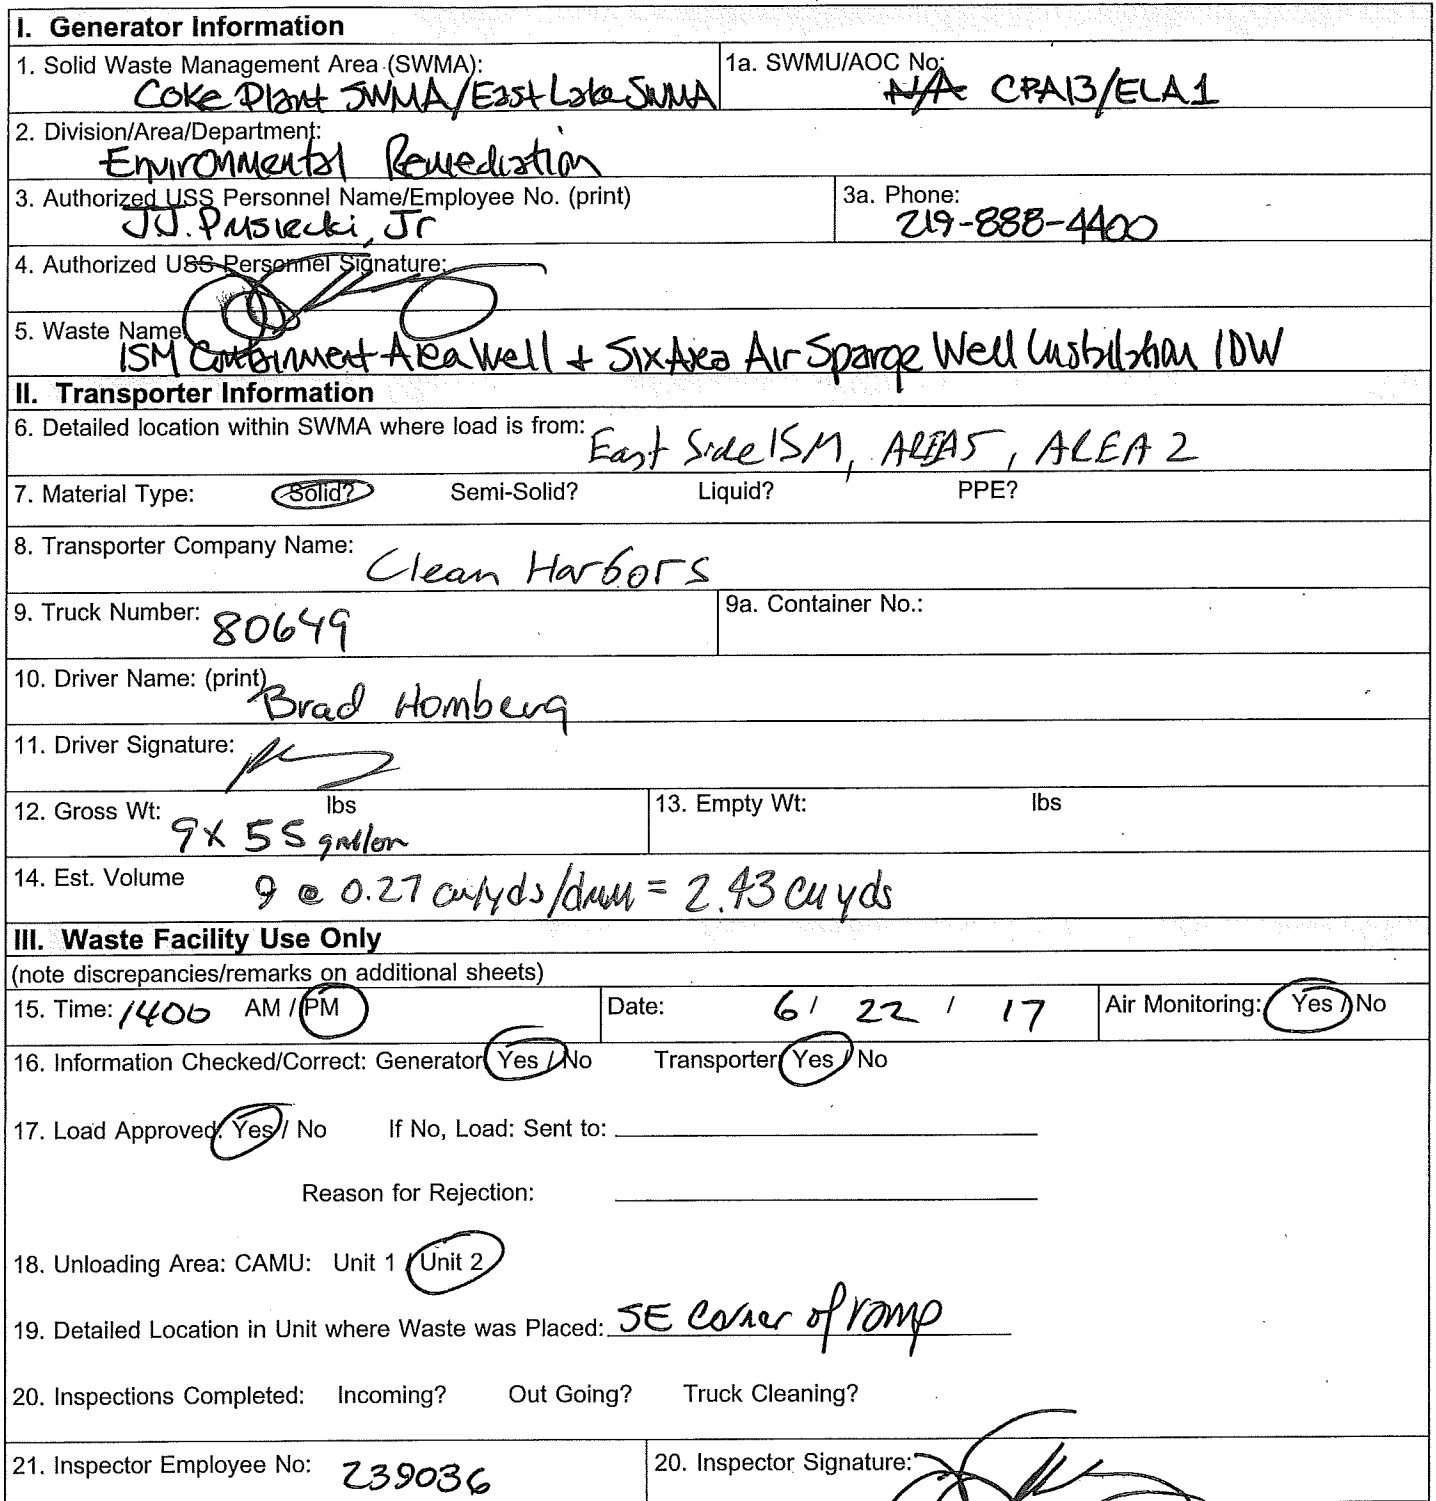 I. Generator Information
1. Solid Waste Management Area (SWMA): 1a. SWMU/AOC No:
Coke Plant SWMA/East Lake SWMA N/A CPA13/ELA1
2. Division/Area/Department:
Environmental Remediation
3. Authorized USS Personnel Name/Employee No. (print) 3a. Phone:
JJ. Prusiecki, Jr 219-888-4400
4. Authorized USS Personnel Signature:
5. Waste Name
ISM Containment Area Well + Six Area Air Sparge Well Installation IDW
II. Transporter Information
6. Detailed location within SWMA where load is from: East Side ISM, AREA5, AREA 2
7. Material Type: Solid? Semi-Solid? Liquid? PPE?
8. Transporter Company Name: Clean Harbors
9. Truck Number: 80649 9a. Container No.:
10. Driver Name: (print) Brad Homberg
11. Driver Signature:
12. Gross Wt: lbs 13. Empty Wt: lbs
9X 55 gallon
14. Est. Volume 9 @ 0.27 cu/yds/drum = 2.43 cu yds
III. Waste Facility Use Only
(note discrepancies/remarks on additional sheets)
15. Time: 1400 AM / PM Date: 6/ 22 / 17 Air Monitoring: Yes / No
16. Information Checked/Correct: Generator Yes / No Transporter Yes / No
17. Load Approved: Yes / No If No, Load: Sent to:
Reason for Rejection:
18. Unloading Area: CAMU: Unit 1 / Unit 2
19. Detailed Location in Unit where Waste was Placed: SE Corner of ramp
20. Inspections Completed: Incoming? Out Going? Truck Cleaning?
21. Inspector Employee No: 239036 20. Inspector Signature: